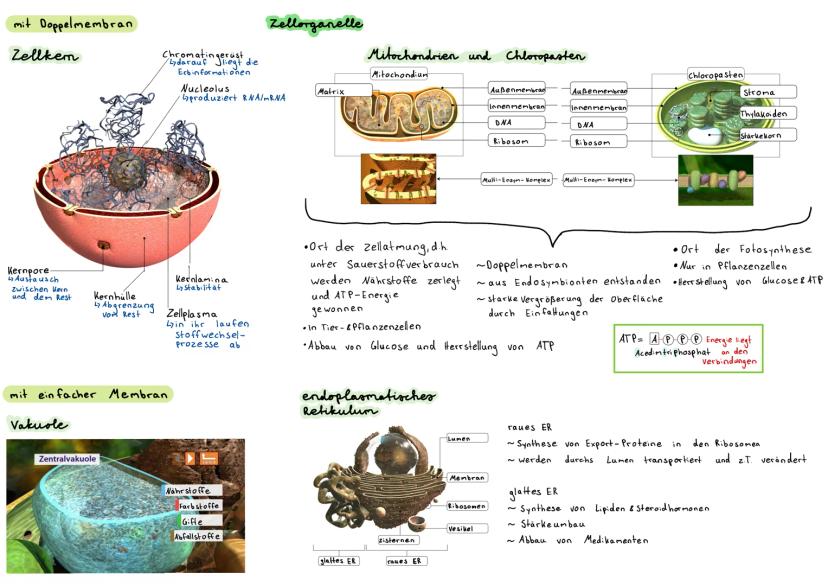 mit Doppelmembran
Zellorganelle
Zellkern
Chromatingerüst
↳darauf liegt die
Erbinformationen
Nucleolus
↳produziert RNA/mRNA
Kernpore
↳Austausch
zwischen Kern
und dem Rest
Kernhülle
↳Abgrenzung
vom Rest
Kernlamina
↳stabilität
Zellplasma
↳in ihr laufen
stoffwechsel-
prozesse ab
Mitochondrien und Chloropasten
Mitochondium
Matrix
Außenmembran
Innenmembran
DNA
Ribosom
Multi-Enzym-Komplex
Chloropasten
Außenmembran
Innenmembran
DNA
Ribosom
Multi-Enzym-Komplex
Stroma
Thylakoiden
Stärkekorn
•Ort der Zellatmung, d.h.
unter Sauerstoffverbrauch
werden Nährstoffe zerlegt
und ATP-Energie
gewonnen
•In Tier-&Pflanzenzellen
•Abbau von Glucose und Herrstellung von ATP
~Doppelmembran
~aus Endosymbionten entstanden
~starke Vergrößerung der Oberfläche
durch Einfaltungen
•Ort der Fotosynthese
•Nur in Pflanzenzellen
•Herrstellung von Glucose&ATP
ATP= A-P-P-P Energie liegt
Acedimtriphosphat an den
Verbindungen
mit einfacher Membran
Vakuole
Zentralvakuole
Nährstoffe
Farbstoffe
Gifte
Abfallstoffe
endoplasmatisches
Retikulum
Lumen
Membran
Ribosomen
Vesikel
Zisternen
glattes ER
raues ER
raues ER
~ Synthese von Export-Proteine in den Ribosomen
~ werden durchs Lumen transportiert und z.T. verändert
glattes ER
~ Synthese von Lipiden & Steroidhormonen
~ Stärkeumbau
~ Abbau von Medikamenten